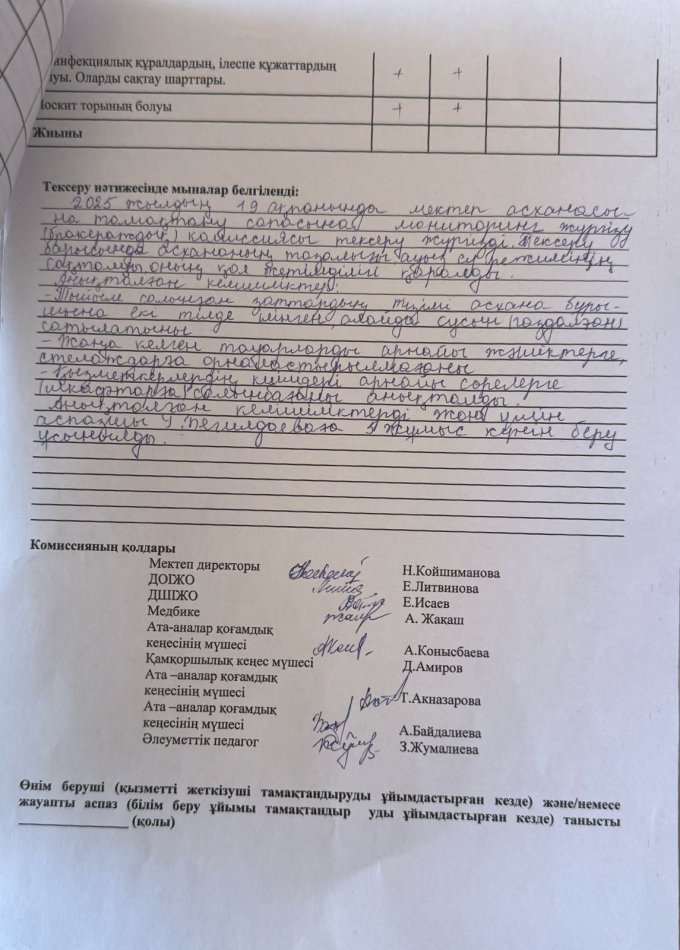 инфекциялық құралдардың, ілеспе құжаттардың
луы. Оларды сақтау шарттары. + +
Москит торының болуы + +
Жиыны
Тексеру нәтижесінде мыналар белгіленді:
2025 жылдың 19 ақпанында мектеп асханасы-
на тамақтану сапасына мониторинг жүргізу
(бракераждық) комиссиясы тексеру жүргізді. Тексеру
барысында асхананың тазалығы, ауыз су режимінің
сақталуы, оның қол жетімділігі қаралды.
Анықталған кемшіліктер:
- Тыйым салынған заттардың тізімі асхана буры-
шына екі тілде ілінген, алайда сусын (газдалған)
сатылатыны
- Жаңа келген тауарларды арнайы жәшіктерге,
стелаждарға орналастырылмағаны
- Қызметкерлердің киімдері арнайы сөрелерге
(шкафтарға) салынбағаны анықталды.
Анықталған кемшіліктерді жою үшін
аспазшы У. 5 жұмыс күнін беру
ұсынылды.
Комиссияның қолдары
Мектеп директоры Н.Койшиманова
ДОІЖО Е.Литвинова
ДШІЖО Е.Исаев
Медбике А. Жақаш
Ата-аналар қоғамдық
кеңесінің мүшесі А.Конысбаева
Қамқоршылық кеңес мүшесі Д.Амиров
Ата –аналар қоғамдық
кеңесінің мүшесі Г.Акназарова
Ата –аналар қоғамдық
кеңесінің мүшесі А.Байдалиева
Әлеуметтік педагог З.Жумалиева
Өнім беруші (қызметті жеткізуші тамақтандыруды ұйымдастырған кезде) және/немесе
жауапты аспаз (білім беру ұйымы тамақтандыр уды ұйымдастырған кезде) танысты
_______________ (қолы)